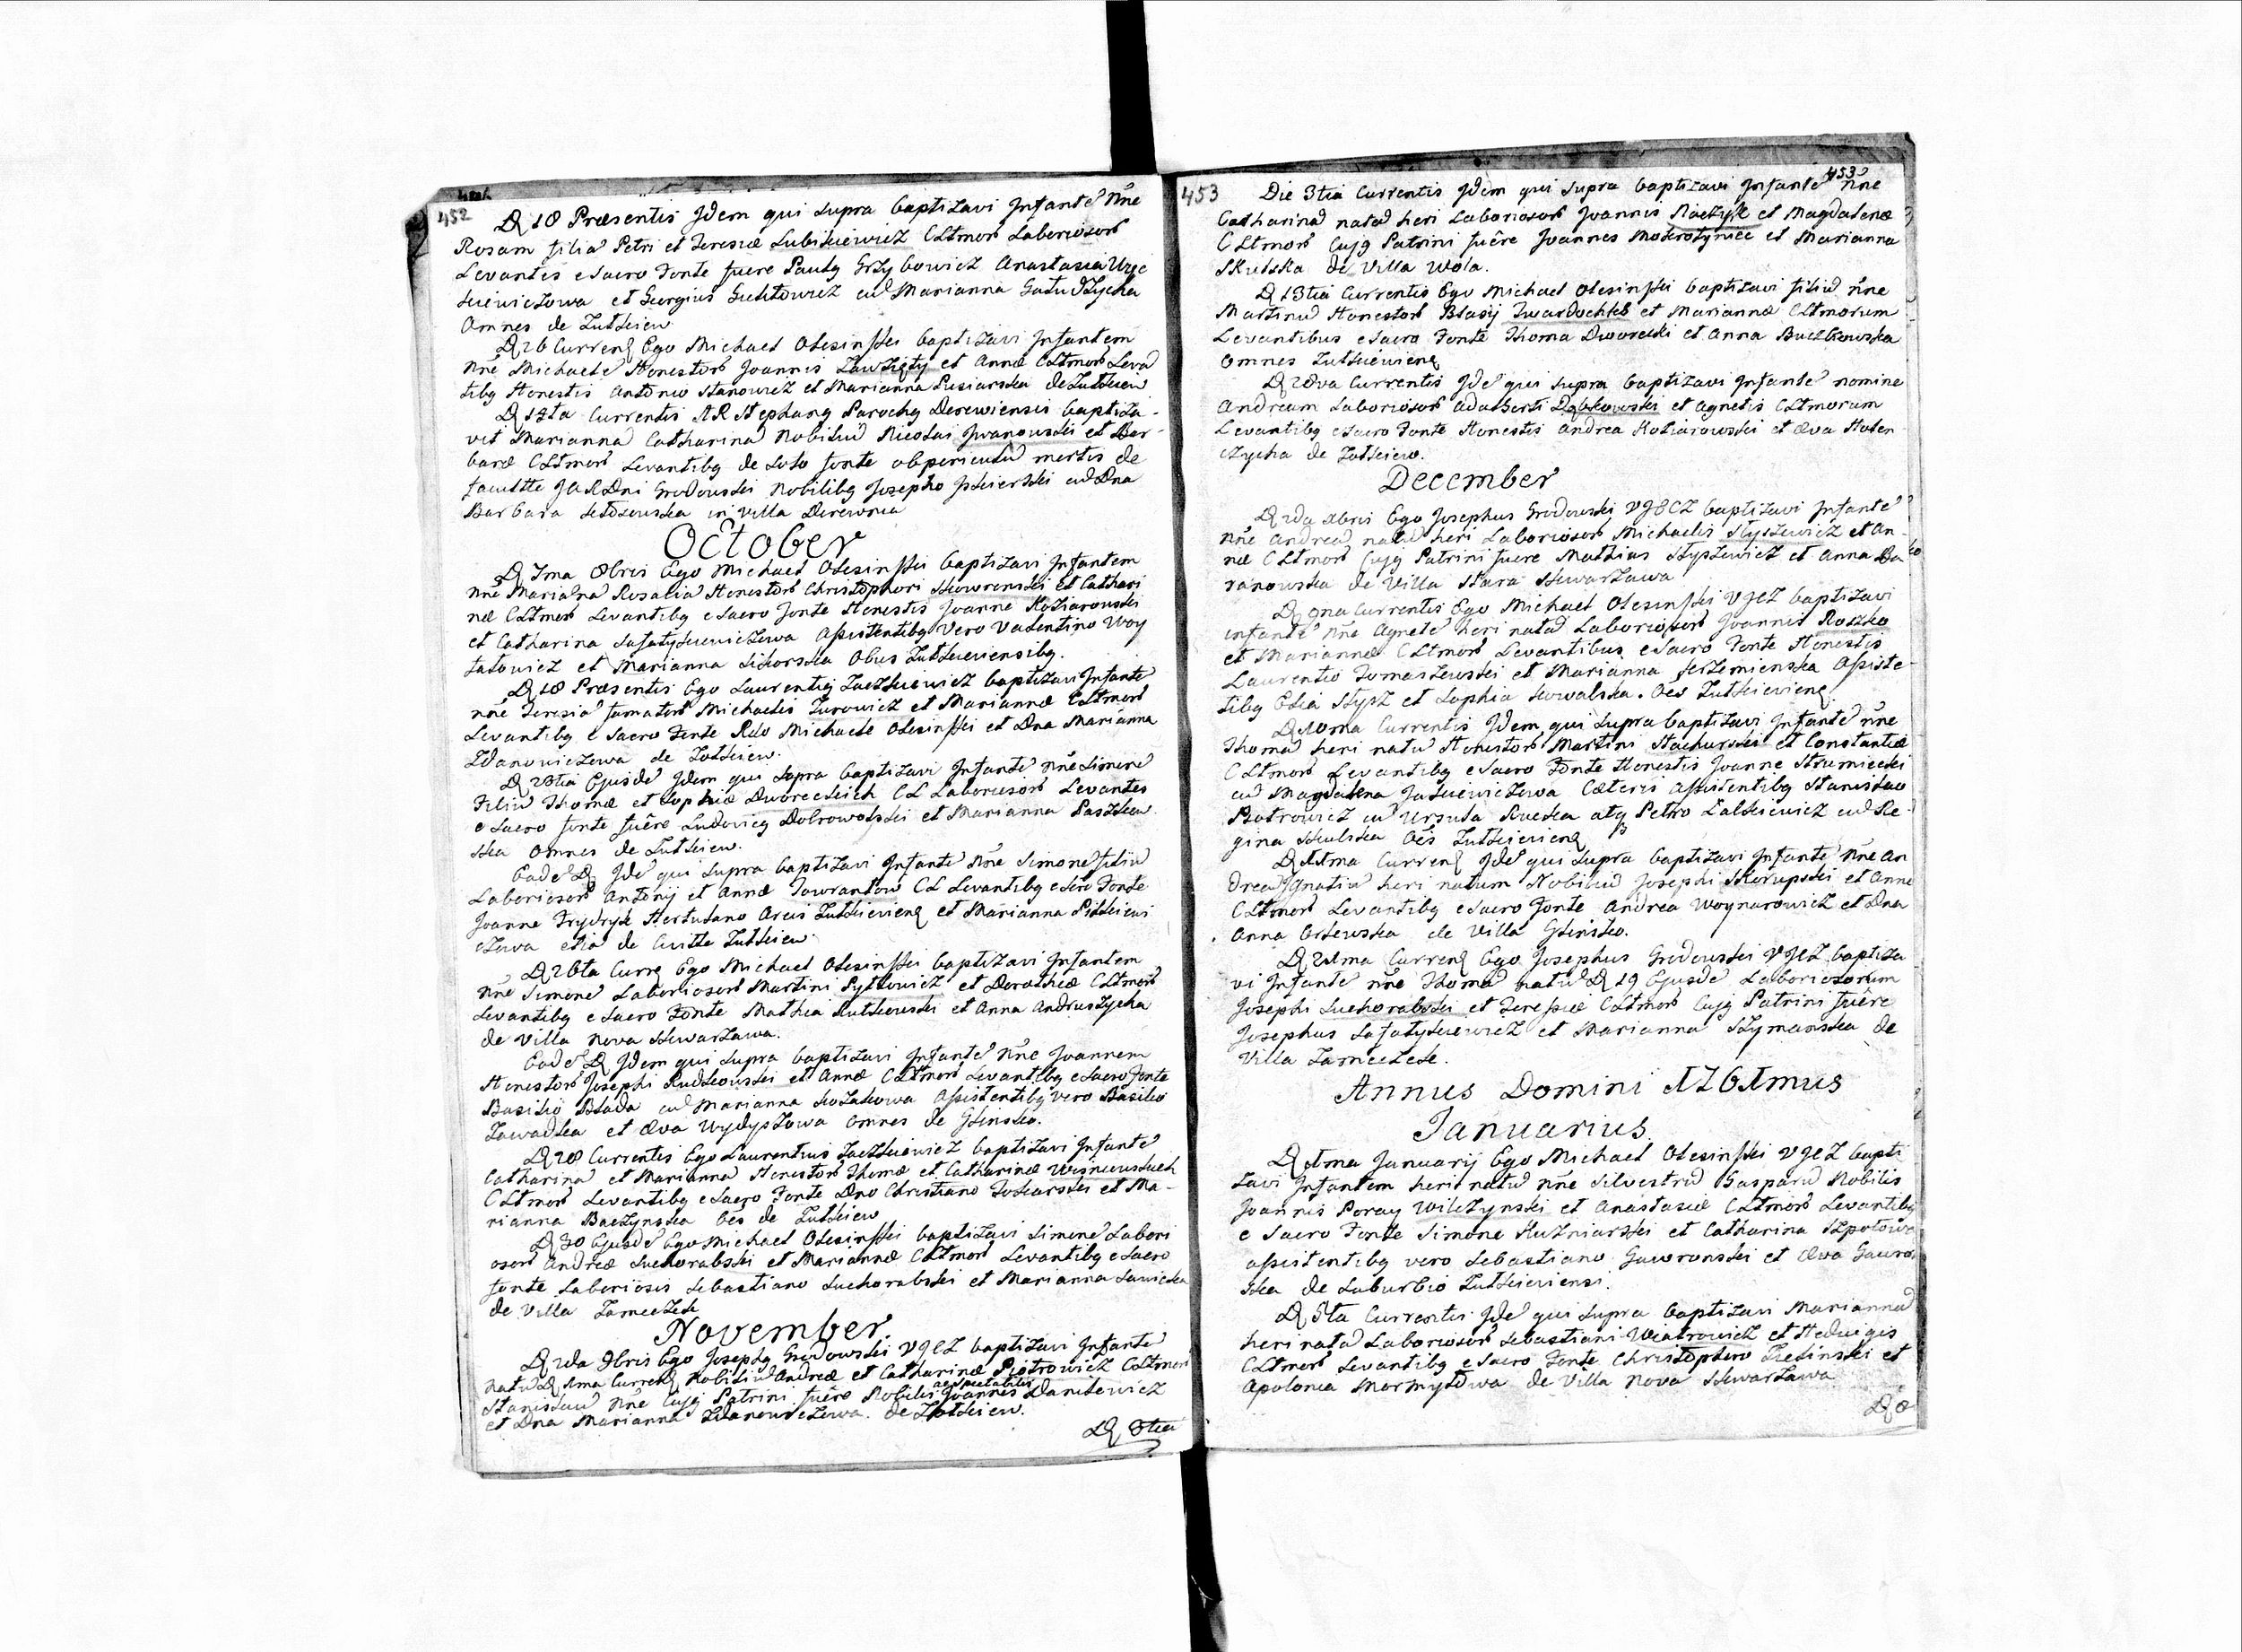 452
D 18 Præsentis Jdem qui supra baptizavi Jnfante nne
Rosam filia Petri et Teresiæ Lubiskiewicz CLtmor Laboriosor
Levantes e Sacro Fonte fuere Paulg Grzybowicz Anastasia
et Georgius cu Marianna
Omnes de Zulkiew
D 26 Curren Ego Michael Olesinski baptizavi Jnfantem
nne Michaele Honestor Joannis Zawzięty et Annæ CLtmor Leva
tibg Honestis Antonio Stanowicz et Marianna Pusiarska de Zulkiew
D Currentis AR Stephang Parochg Derewiensis baptiza-
vit Marianna Catharina Nobiliu Nicolai Jwanowski et Bar-
baræ CLtmor Levantibg de Loto fonte ob periculu mortis de
facultte Dni Grodowski Nobilibg Josepho cu Dna
Barbara in villa Derewnia
October
D 7ma 8bris Ego Michael Olesinski baptizavi Jnfantem
nne Marianna Rosalia Honestor Christophori Skowronski et Cathari
næ CLtmor Levantibg e Sacro fonte Honestis Joanne Koziarowski
et Catharina Safatyskiewiczowa Assistentibg Vero Valentino Woy
tatowicz et Marianna Sikorska Obus Zulkieviensibg.
D 18 Præsentis Ego Laurentig Zaczkiewicz baptizavi Jnfante
nne Teresia famator Michaelis Zurowicz et Mariannæ CLtmor
Levantibg e Sacro Fonte Rdo Michaele Olesinski et Dna Marianna
Zdanowiczowa de Zulkiew.
D 23tia Ejusde Jdem qui supra baptizavi Jnfante nne Simone
Filiu Thomæ et Sophiæ Dworeckich CL Laboriosor Levantes
e Sacro fonte fuêre Ludovicg Dobrowolski et Marianna Paszkow
ska Omnes de Zulkiew.
Eade D Jde qui supra baptizavi Jnfante nne Simone filiu
Laboriosor Antonij et Annæ Tawrantow CL Levantibg e Sacro Fonte
Joanne Frydryk Arcis Zulkievieng et Marianna
czowa etia de Civitte Zulkiew.
D 26ta Curreg Ego Michael Olesinski baptizavi Jnfantem
nne Simone Laboriosor Martini Pytlowicz et Dorotheæ CLtmor
Levantibg e Sacro Fonte Mathia Rutkowski et Anna Andruszycha
de Villa Nova Skwarzawa.
Eade D Jdem qui supra baptizavi Jnfante nne Joannem
Honestor Josephi Rudkowski et Annæ CLtmor Levantibg e Sacro Fonte
Basilio Blada cu Marianna Kozakowa Assistentibg vero Basilio
Zawadka et Æva Wydyszowa Omnes de Glinsko.
D 28 Currentis Ego Laurentius Zaczkiewicz baptizavi Jnfante
Catharina et Marianna Honestor Thomæ et Catharinæ Wisniewskich
CLtmor Levantibg e Sacro Fonte Dno Christiano Tokarski et Ma-
rianna Baczynska Oes de Zulkiew
D 30 Ejusde Ego Michael Olesinski baptizavi Simone Labori
osor Andreæ Suchorabski et Mariannæ CLtmor Levantibg e Sacro
fonte Laboriosis Sebastiano Suchorabski et Marianna Sawicka
de Villa Zameczek
November.
D 2da 9bris Ego Josephg Grodowski VJCZ baptizavi Jnfante
natu D 1ma Curreng Nobiliu Andreæ et Catharinæ Piotrowicz CLtmor
Stanislau nne Cujg Patrini fuêre Nobilis Joannes Danilewicz
et Dna Marianna Zdanowiczowa. de Zulkiew.
D 3tia
453
453
Die 3tia Currentis Jdem qui supra baptizavi Jnfante nne
Catharina nata heri Laboriosor Joannis Raczyk et Magdalenæ
CLtmor Cujg Patrini fuêre Joannes Mokrotyniec et Marianna
Skulska de Villa Wola.
D 13tia Currentis Ego Michael Olesinski baptizavi filiu nne
Martinu Honestor Blasij Twardochleb et Mariannæ CLtmorum
Levantibus e Sacro Fonte Thoma Dworecki et Anna Buczkowska
Omnes Zulkievieng
D 28va Currentis Jde qui supra baptizavi Jnfante nomine
Andream Laboriosor Adalberti Dąbkowski et Agnetis CLtmorum
Levantibg e Sacro Fonte Honestis Andrea Koziarowski et Æva Holen
czycha de Zulkiew.
December
D 2da Xbris Ego Josephus Grodowski VJSCZ baptizavi Jnfante
nne Andrea natu heri Laboriosor Michaelis Styszewicz et An
næ CLtmor Cujg Patrini fuere Mathias Styszewicz et Anna Ba
ranowska de Villa Stara Skwarzawa
D 9na Currentis Ego Michael Olesinski VJCZ baptizavi
infante nne Agnete heri nata Laboriosor Joannis Roszko
et Mariannæ CLtmor Levantibus e Sacro Fonte Honestis
Laurentio Tomaszewski et Marianna Jerzemienska Assiste
tibg Elia Stysz et Sophia Kowalska. Oes Zulkievieng
D 10ma Currentis Jdem qui supra baptizavi Jnfante nne
Thoma heri natu Honestor Martini Stachurski et Constantiæ
CLtmor Levantibg e Sacro Fonte Honestis Joanne Strumiecki
cu Magdalena Jaskiewiczowa Cæteris Assistentibg Stanislao
Piotrowicz cu Ursula Rucka atq Petro Zalkiewicz cu Re-
gina Skulska Oes Zulkievieng
D 11ma Curreng Jde qui supra baptizavi Jnfante nne An
drea Jgnatiu heri natum Nobiliu Josephi Skorupski et Annæ
CLtmor Levantibg e Sacro Fonte Andrea Woynarowicz et Dna
Anna Orlewska de Villa Glinsko.
D 21ma Curreng Ego Josephus Grodowski VJCZ baptiza
vi Jnfante nne Thoma natu D 19 Ejusde Laboriosorum
Josephi Suchorabski et Teresiæ CLtmor Cujg Patrini fuêre
Josephus Safatyskiewicz et Marianna Szymanska de
Villa Zameczek.
Annus Domini 1761mus
Januarius.
D 1ma Januarij Ego Michael Olesinski VJCZ bapti
zavi Jnfantem heri natu nne Silvestru Gasparu Nobilis
Joannis Poray Wilczynski et Anastasiæ CLtmor Levantibg
e Sacro Fonte Simone Kuzniarski et Catharina Szpotowa
assistentibg vero Sebastiano Gawronski et Æva Gawron
ska de Suburbio Zulkieviensi.
D 5ta Currentis Jde qui supra baptizavi Marianna
heri nata Laboriosor Sebastiani Wiatrowicz et Hedwigis
CLtmor Levantibg e Sacro Fonte Christophoro Zielinski et
Apolonia Mormylowa de Villa Nova Skwarzawa
D 8